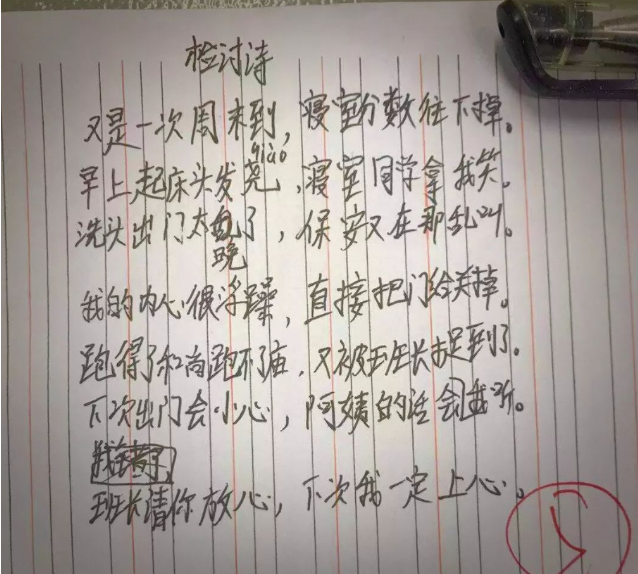 检讨诗
又是一次周末到，寝室分数往下掉。
qiào
早上起床头发尧，寝室同学拿我笑。
洗头出门太了，保安又在那乱叫。
晚
我的内心很浮躁，直接把门给关掉。
跑得了和尚跑不了庙，又被班长捉到了。
下次出门会小心，阿姨的话会听。
班长请你放心，下次我一定上心。